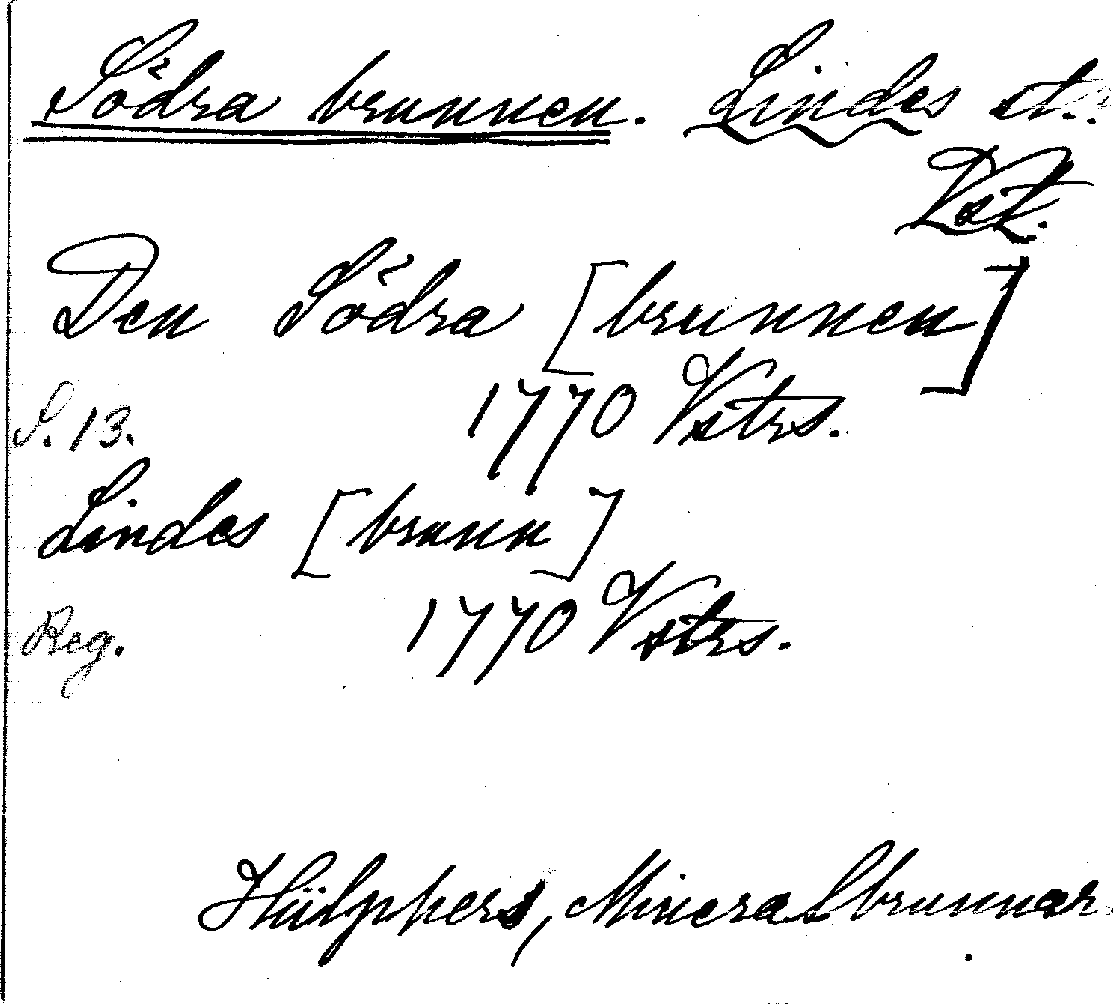 Södra brunnen. Lindes st.
Vstm.
Den Södra [brunnen]
S. 13. 1770 Vstrs.
Lindes [brunn]
Reg. 1770 Vstrs.
Hülphers, Mineralbrunnar.